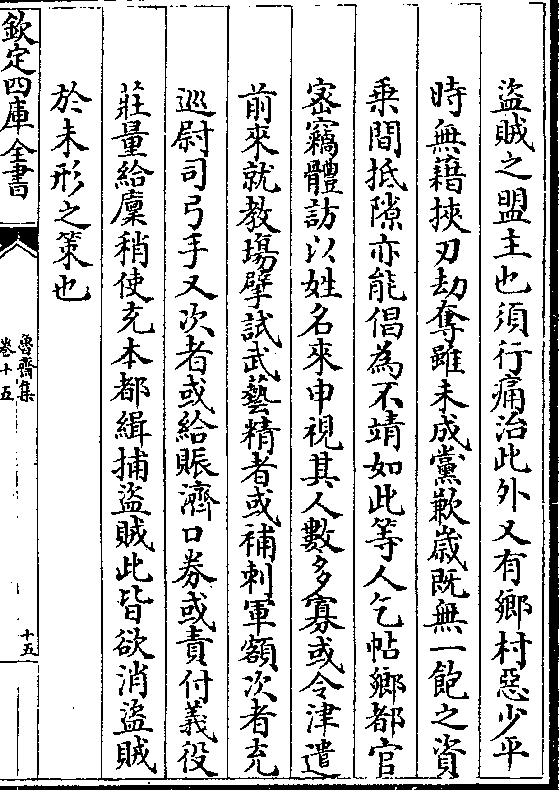 盜賊之盟主也須行痛治此外又有鄉村惡少平
時無藉挾刃刼奪雖未成黨歉歲既無一飽之資
乘間抵隙亦能倡為不靖如此等人乞帖鄉都官
宻竊體訪以姓名來申視其人數多寡或令津遣
前來就教場擘試武藝精者或補刺軍額次者充
巡尉司弓手又次者或給賑濟口劵或責付義役
莊量給廩稍使充本都緝捕盜賊此皆欲消盜賊
於未形之策也
欽定四庫全書
魯齋集
卷十五
十五